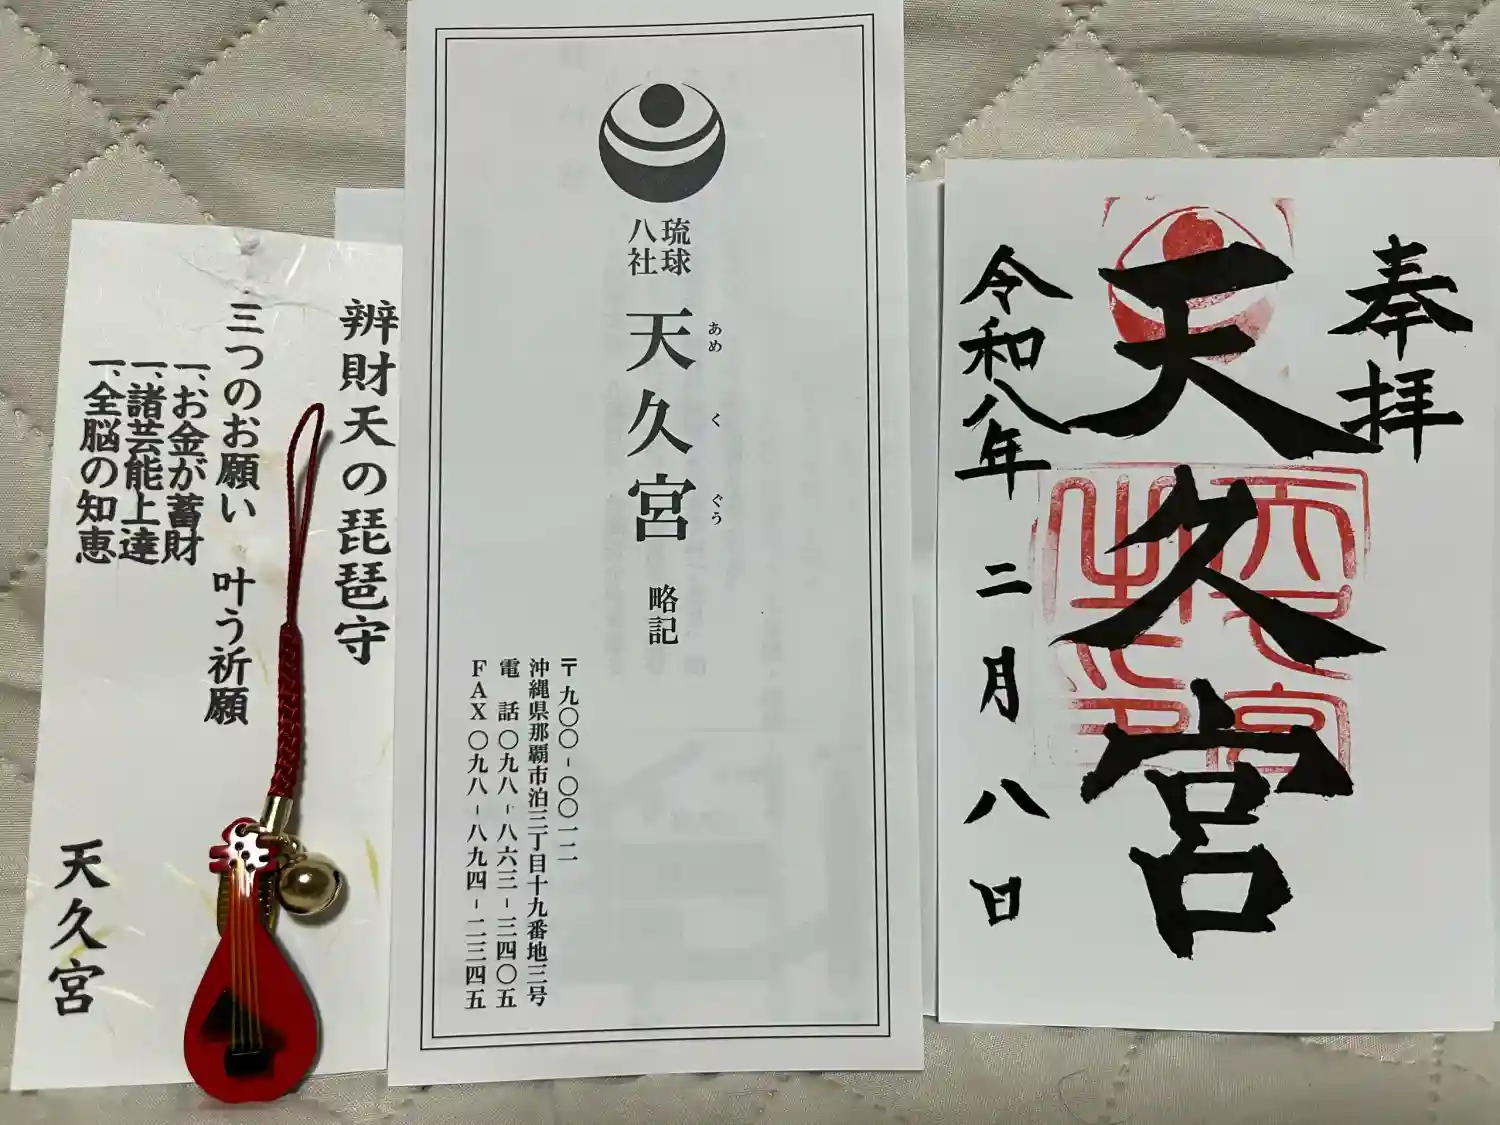 辨財天の琵琶守
三つのお願い 叶う祈願
一、お金が蓄財
一、諸芸能上達
一、全脳の知恵
天久宮
琉球
八社
天久宮
あめ く ぐう
略記
〒九〇〇-〇〇一二
沖縄県那覇市泊三丁目十九番地三号
電 話〇九八-八六三-三四〇五
FAX〇九八-八九四-二三四五
奉拝
天久宮
令和八年 二月 八日
天久宮
之印